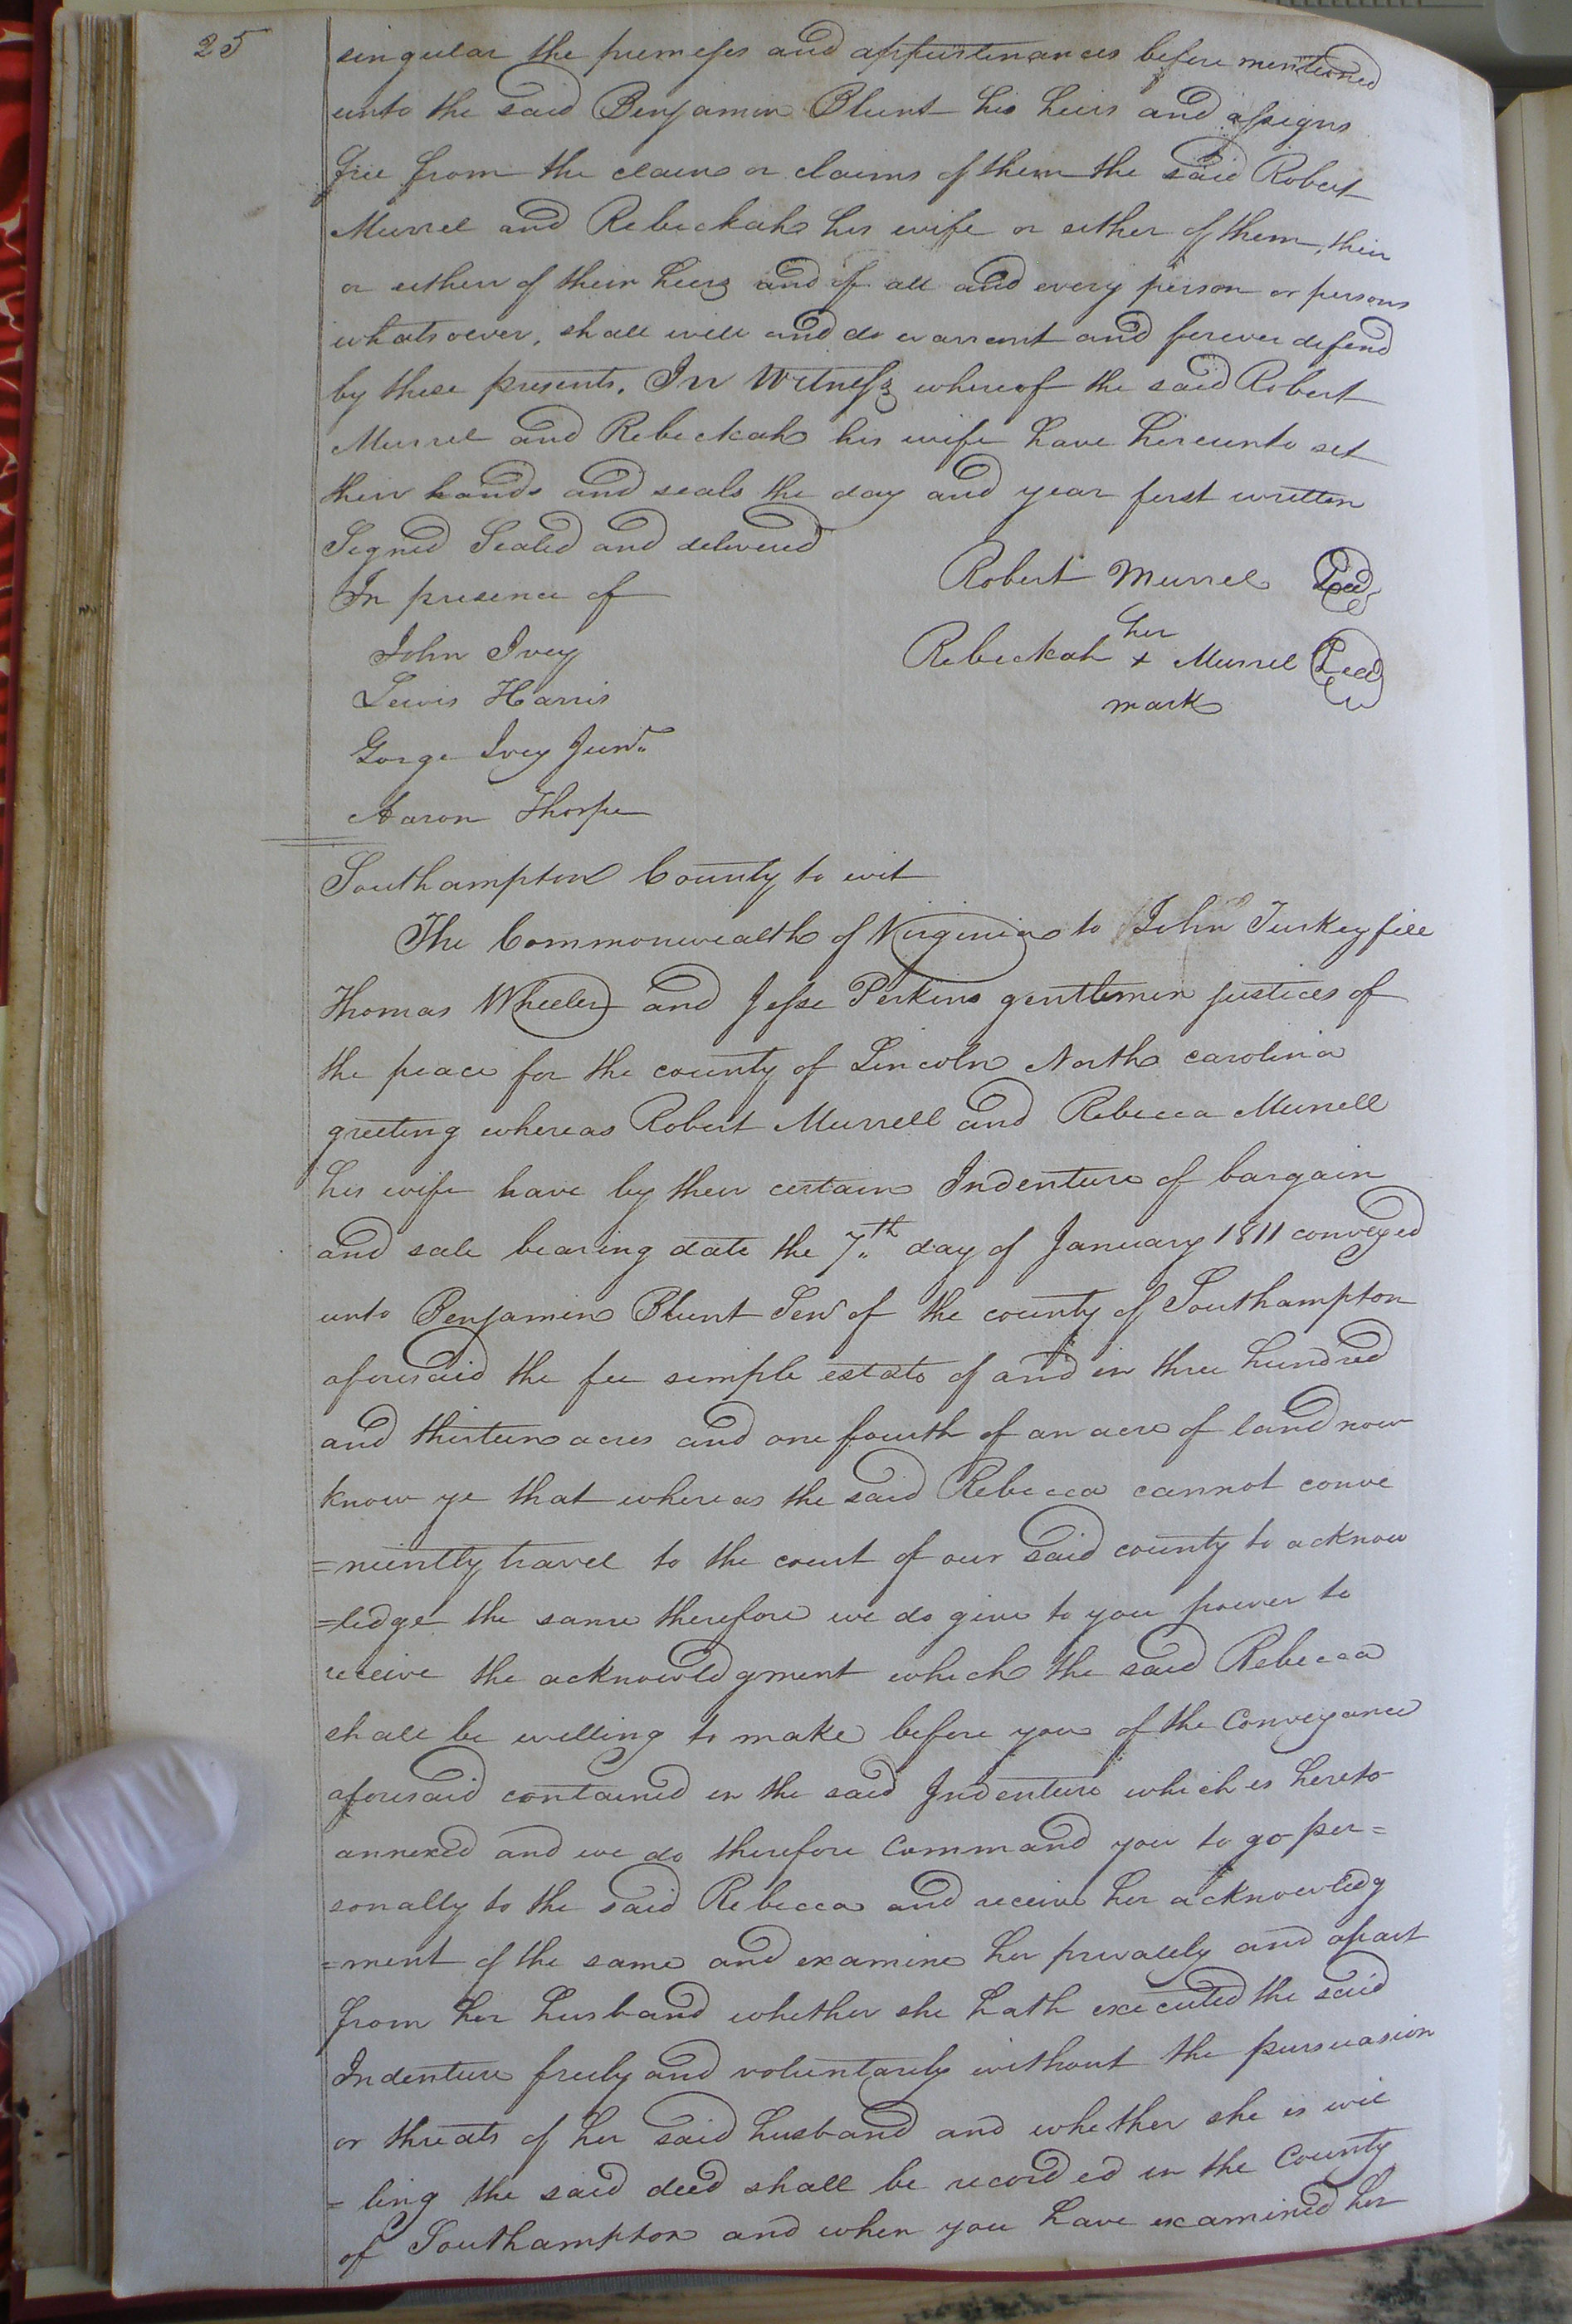 25
singular the premeses and appurtenances before mentioned
unto the said Benjamin Blunt his heirs and assigns
free from the claim or claims of them the said Robert
Murrel and Rebeckah his wife or either of them, their
or either of their heirs and of all and every person or persons
whatsoever, shall will and do warrant and forever defend
by these presents. In Witness whereof the said Robert
Murrel and Rebeckah his wife have hereunto set
their hands and seals the day and year first written
Signed Sealed and delivered
In presence of
Robert Murrel Seal
her
Rebeckah + Murrel Seal
mark
John Ivey
Lewis Harris
Gorge Ivey Junr.
Aaron Thorpe
Southampton County to wit
The Commonwealth of Virginia to John Turkeyfill
Thomas Wheeler and Jesse Perkins gentlemen justices of
the peace for the county of Lincoln North carolina
greeting whereas Robert Murrell and Rebecca Murrell
his wife have by their certain Indenture of bargain
and sale bearing date the 7th day of January 1811 conveyed
unto Benjamin Blunt Senr of the county of Southampton
aforesaid the fee simple estate of and in three hundred
and thirteen acres and one fourth of an acre of land now
know ye that whereas the said Rebecca cannot conve
=niently travel to the court of our said county to acknow
=ledge the same therefore we do give to you power to
receive the acknowledgment which the said Rebecca
shall be willing to make before you of the Conveyance
aforesaid contained in the said Indenture which is hereto
annexed and we do therefore Command you to go per=
sonally to the said Rebecca and receive her acknowledg
=ment of the same and examine her privately and apart
from her husband whether she hath executed the said
Indenture freely and voluntarily without the pursuasion
or threats of her said husband and whether she is wil
=ling the said deed shall be recorded in the County
of Southampton and when you have examined her